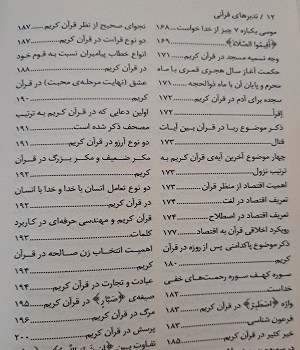 ۱۲ / تدبرهای قرآنی
موسی یکباره ۷ چیز از خدا خواست ۱۶۸
﴿أَقِیمُوا الصَّلاة﴾ ۱۶۹
وجه تسمیه مسجد در قرآن کریم ۱۷۱
حکمت آغاز سال هجری قمری با ماه
محرم و پایان آن با ماه ذوالحجه ۱۷۱
سجده برای آدم در قرآن کریم ۱۷۲
إقرأ ۱۷۲
ذکر موضوع ربا در قرآن بین آیات
قتال ۱۷۳
چهار موضوع آخرین آیه‌ی قرآن کریم به
ترتیب نزول ۱۷۳
اهمیت اقتصاد از منظر قرآن ۱۷۳
تعریف اقتصاد در لغت ۱۷۴
تعریف اقتصاد در اصطلاح ۱۷۴
رویکرد اخلاقی قرآن به اقتصاد ۱۷۷
ذکر موضوع پاکدامنی پس از روزه در قرآن
کریم ۱۸۲
سوره کهف سوره رحمت‌های خفی
خداست ۱۸۲
واژه ﴿اصْطَبِرْ﴾ در قرآن کریم ۱۸۳
فرعون شناسی ۱۸۵
خیر کثیر در قرآن کریم ۱۸۵
نجوای صحیح از نظر قرآن کریم ۱۸۷
دو نوع قرائت در قرآن کریم ۱۸۷
انواع خطاب پیامبران نسبت به قوم خود
در قرآن کریم ۱۸۸
عشق (نهایت مرحله‌ی محبت) در قرآن
کریم ۱۹۰
اولین دعایی که در قرآن کریم به ترتیب
مصحف ذکر شده است ۱۹۱
دو نوع آرزو در قرآن کریم ۱۹۱
مکر ضعیف و مکر بزرگ در قرآن
کریم ۱۹۲
دو نوع تعامل انسان با خدا و خدا با انسان
در قرآن کریم ۱۹۲
قرآن کریم و مهندسی حرفه‌ای در کاربرد
کلمات ۱۹۳
اهمیت انتخاب زن صالحه در قرآن
کریم ۱۹۴
عبادت و تجارت در قرآن کریم ۱۹۴
صیغه‌ی ﴿صَبَّار﴾ در قرآن کریم ۱۹۵
مرگ در قرآن کریم ۱۹۶
پرسش در قرآن کریم ۲۰۰
تفاوت بین